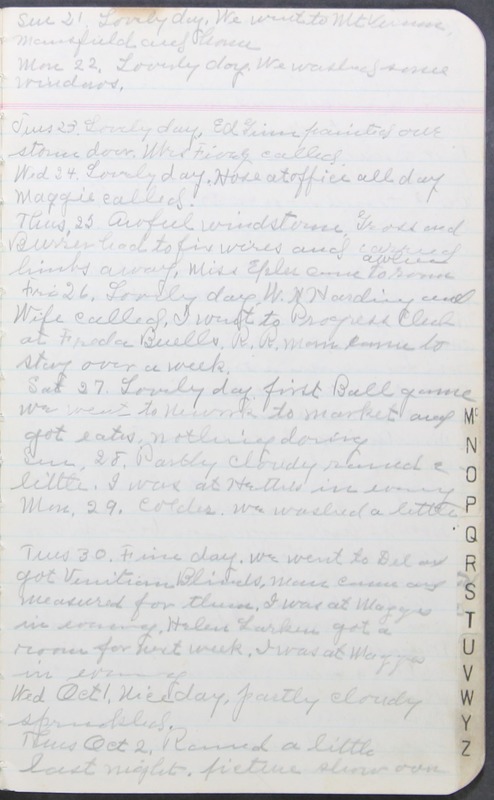 Sun 21. Lovely day. We went to Mt Vernon,
Mansfield and home
Mon 22. Lovely day. We washed some
windows.
Tues 23. Lovely day, Ed Finn painted our
storm door. Mrs called.
Wed 24. Lovely day. Hose at office all day
Maggie called.
Thus, 25 Awful windstorm, Gross and
Burrer had to fix wires and carried
limbs away, Miss came to room
Fri 26. Lovely day, W. N Harding and
Wife called, I went to Progress Club
at Freda Buells. R. R. man came to
stay over a week.
Sat 27. Lovely day, first Ball game
we went to Newark to market and
got eats, nothing doing
Sun, 28. Partly cloudy rained a
little. I was at Hatties in evening
Mon, 29. Colder. we washed a little
Tues 30. Fine day. we went to Del and
got Venitian Blinds, man came and
measured for them, I was at Maggs
in evening, Helen Larkin got a
room for next week. I was at Maggs
in evening
Wed Oct 1, Nice day, partly cloudy
sprinkled,
Thus Oct 2, Rained a little
last night. picture show
Mc
N
O
P
Q
R
S
T
U
V
W
Y
Z